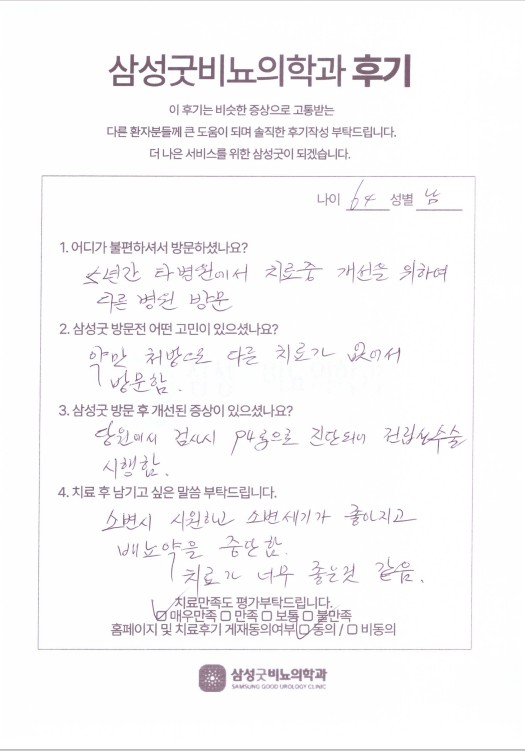 삼성굿비뇨의학과 후기
이 후기는 비슷한 증상으로 고통받는
다른 환자분들께 큰 도움이 되며 솔직한 후기작성 부탁드립니다.
더 나은 서비스를 위한 삼성굿이 되겠습니다.
나이 64 성별 남
1. 어디가 불편하셔서 방문하셨나요?
5년간 타병원에서 치료중 개선을 위하여
다른 병원 방문
2. 삼성굿 방문전 어떤 고민이 있으셨나요?
약만 처방으로 다른 치료가 없어서
방문함.
3. 삼성굿 방문 후 개선된 증상이 있으셨나요?
당원에서 검사시 으로 진단되어 전립선수술
시행함.
4. 치료 후 남기고 싶은 말씀 부탁드립니다.
소변시 시원하고 소변세기가 좋아지고
배뇨약을 중단함.
치료가 너무 좋은것 같음.
치료만족도 평가부탁드립니다.
☑ 매우만족 □ 만족 □ 보통 □ 불만족
홈페이지 및 치료후기 게재동의여부 ☑ 동의 / □ 비동의
삼성굿비뇨의학과
SAMSUNG GOOD UROLOGY CLINIC